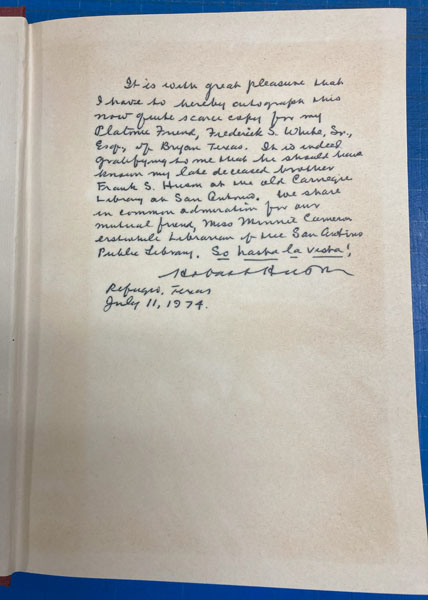 It is with great pleasure that
I have to hereby autograph this
now quite scarce copy for my
Platonic Friend, Frederick S. White, Sr.,
Esq., of Bryan Texas. It is indeed
gratifying to me that he should have
known my late deceased brother
Frank S. Huson at the old Carnegie
Library at San Antonio. We share
in common admiration for our
mutual friend, Miss Minnie Cameron
erstwhile Librarian of the San Antonio
Public Library. So hasta la vista!
Hobart Huson
Refugio, Texas
July 11, 1974.